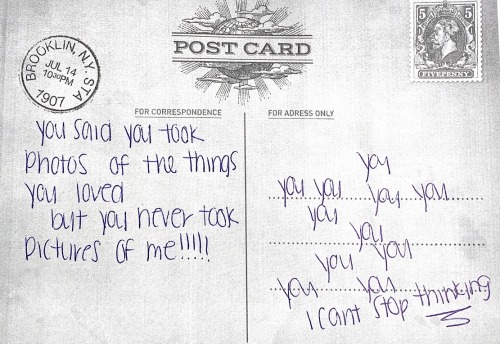 BROOKLIN, N.Y. STA
JUL 14
1030PM
1907
POST CARD
5 5
FIVEPENNY
FOR CORRESPONDENCE
you said you took
photos of the things
you loved
but you never took
pictures of me!!!!!
FOR ADRESS ONLY
you
you you you you
you
you
you you
you you
I cant stop thinking